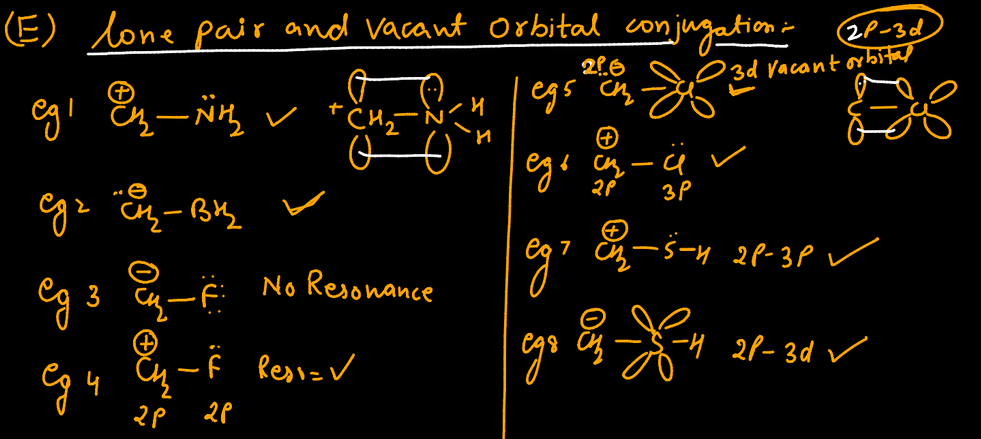 (E) lone pair and vacant orbital conjugation:- 2P-3d
eg1 ⊕CH₂—N̈H₂ ✓
+CH₂—N H H
eg2 ⊖C̈H₂—BH₂ ✓
eg 3 ⊖CH₂—F: No Resonance
eg 4 ⊕CH₂—F̈ Reso= ✓
2P 2P
eg5 2P ⊖C̈H₂—Cl 3d vacant orbital ✓
C—Cl
eg6 ⊕CH₂—C̈l ✓
2P 3P
eg7 ⊕CH₂—S̈—H 2P-3P ✓
eg8 ⊖CH₂—S—H 2P-3d ✓